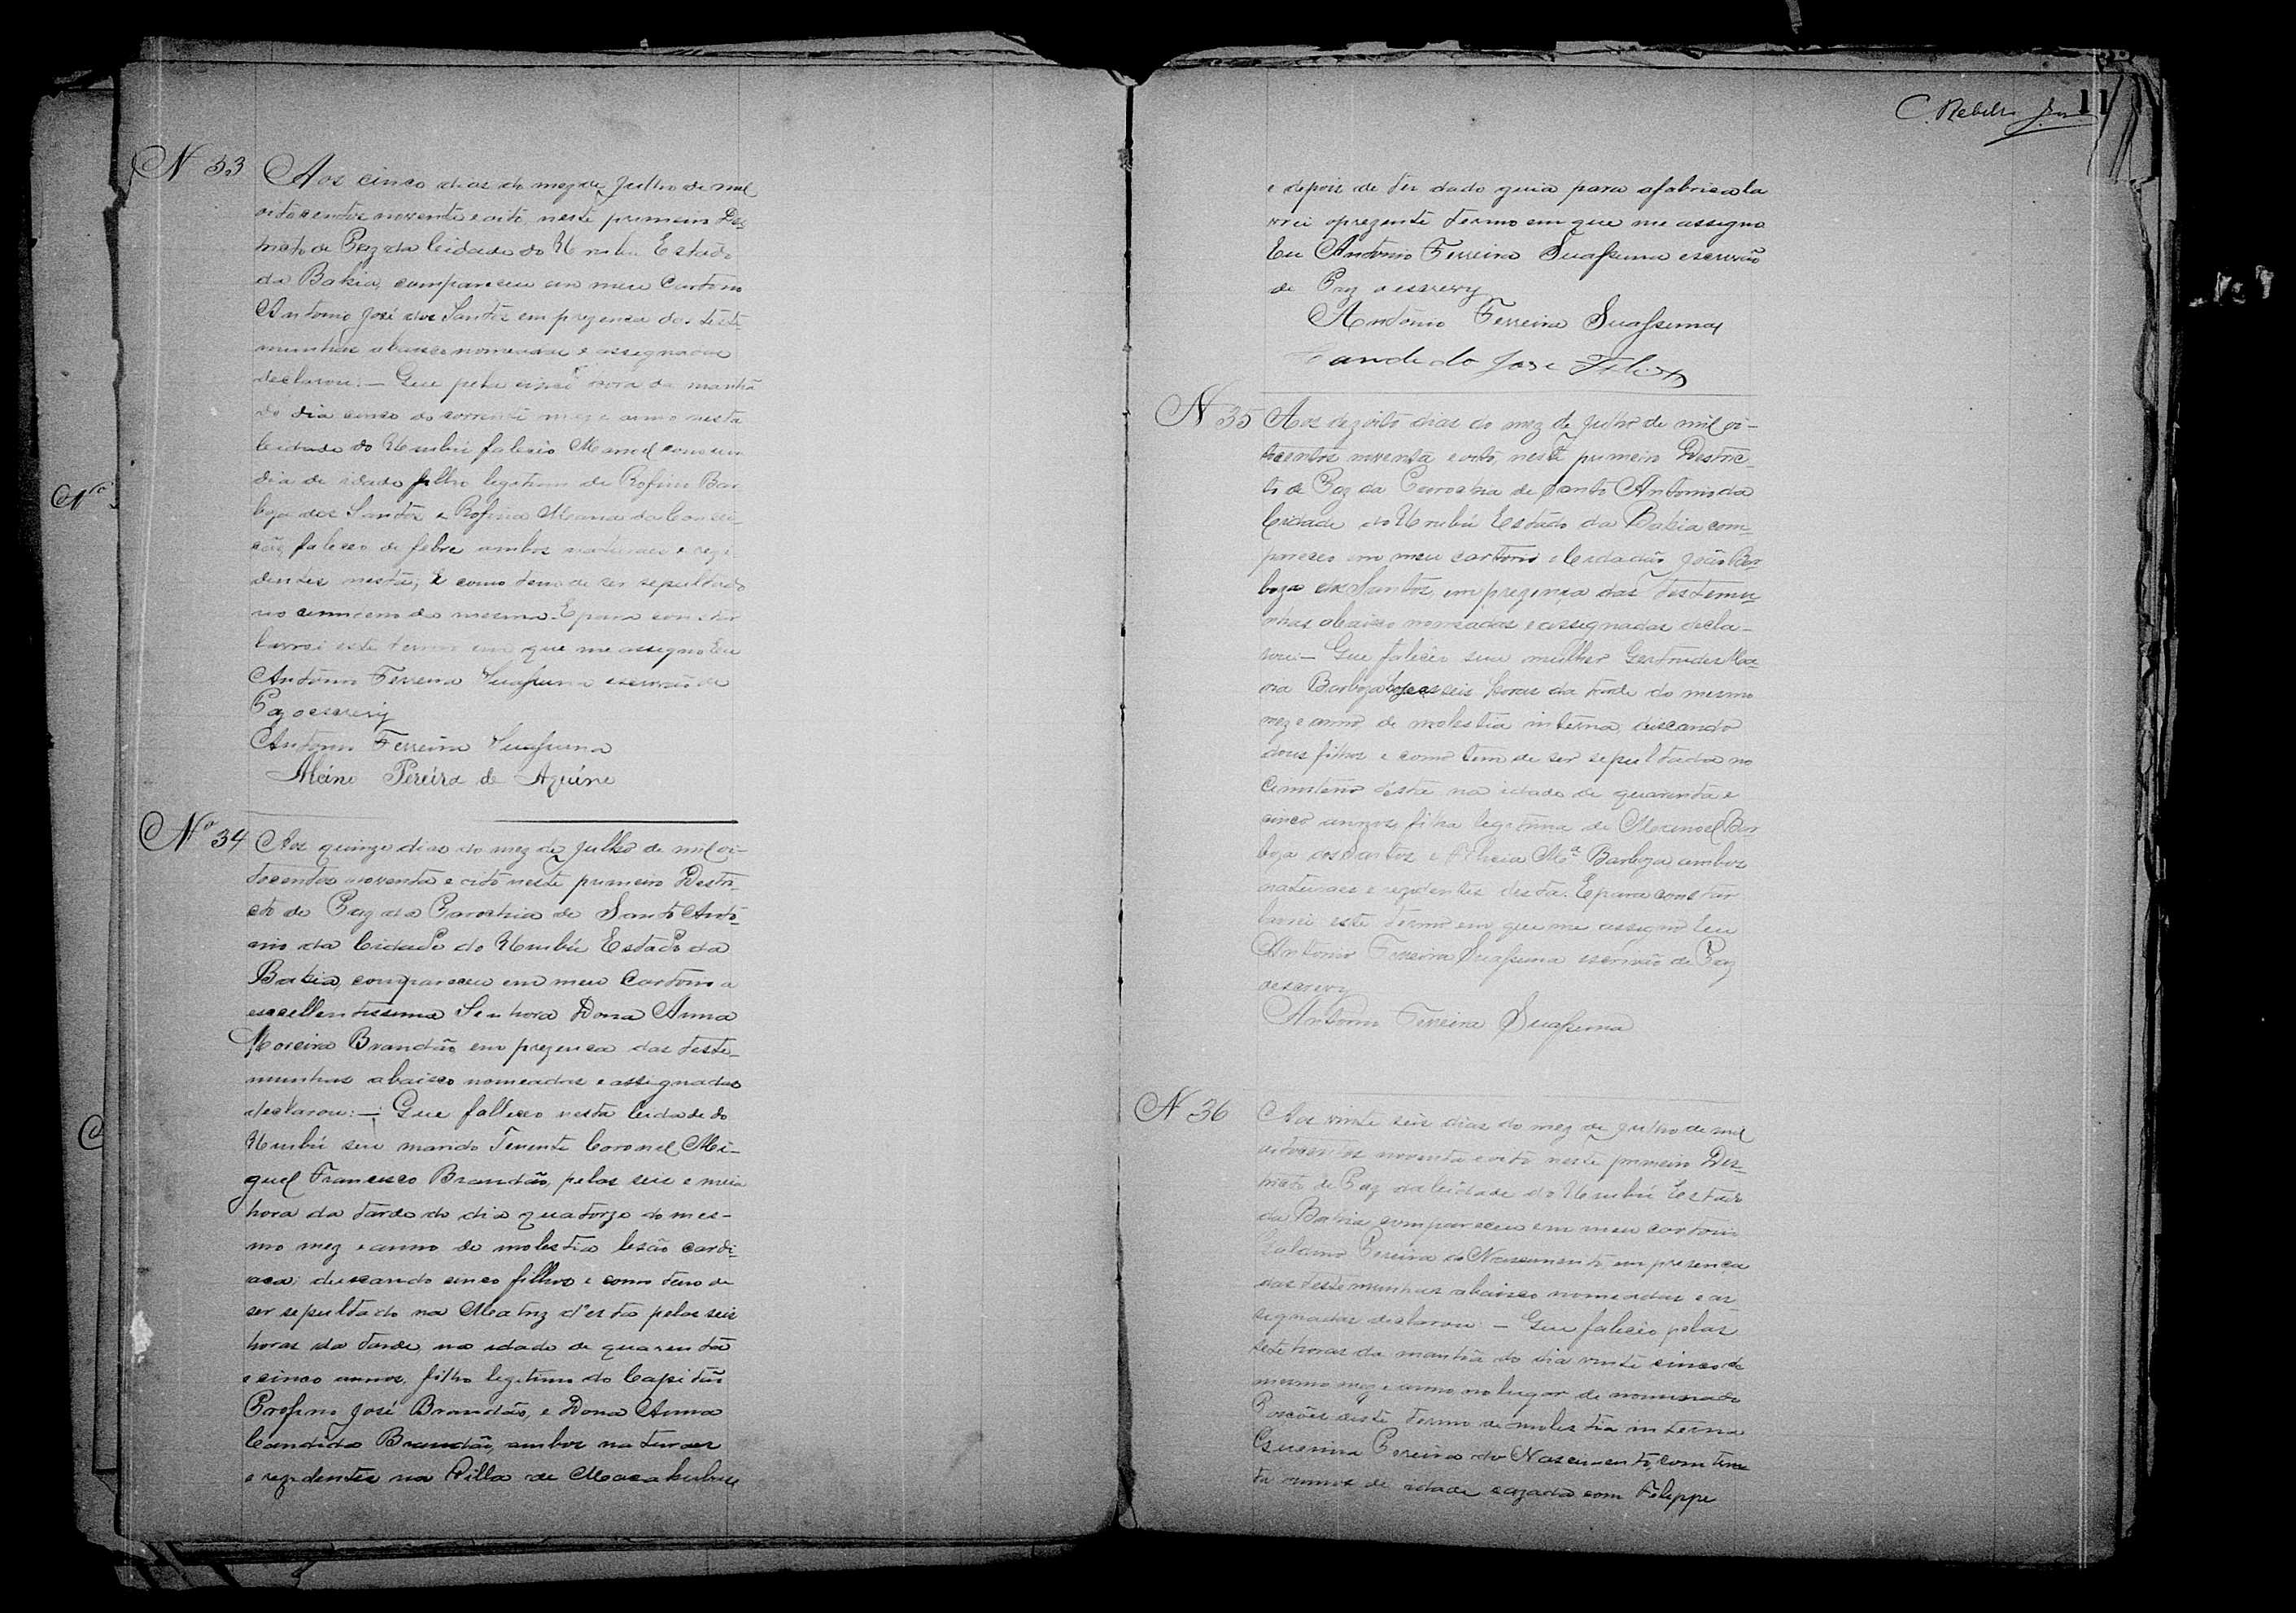 N 33
Aos cinco dias do mez de Julho de mil
oitocentos noventa e oito neste primeiro Des-
tricto de Paz da Cidade do Urubu Estado
da Bahia, compareceu em meu Cartorio
Antonio José dos Santos em prezenca das teste
munhas abaixo nomeadas e assignadas
declarou: — Que pela cinco hora da manhã
do dia cinco do corrente mez e anno nesta
Cidade do Urubú faleceo Manoel com um
dia de idade filho legitimo de Rofino Bar
boza dos Santos e Rofina Maria da Concei-
cão, faleceo de febre ambos naturaes e rezi
dentes nesta; E como tem de ser sepultado
no cemiterio da mesma. E para constar
lavrei este termo em que me assigno Eu
Antonio Ferreira Suassuna escrivão de
Paz o escrevy
Antonio Ferreira Suassuna
Alcino Pereira de Aquino
Nº 34
Aos quinze dias do mez de Julho de mil oi-
tocentos noventa e oito neste primeiro Destri-
cto de Paz da Parochia de Santo Anto-
nio da Cidade do Urubú Estado da
Bahia, compareceu em meu Cartorio a
excellentissima Senhora Dona Anna
Moreira Brandão em prezenca das teste-
munhas abaixo nomeadas e assignadas
declarou: — Que falleceo nesta Cidade do
Urubú seu marido Tenente Coronel Mi-
guel Francisco Brandão, pelas seis e meia
hora da tarde do dia quatorze do mes-
mo mez e anno de molestia lesão cardi-
aca; deixando cinco filhos e como tem de
ser sepultado na Matriz d'esta pelas seis
horas da tarde, na idade de quarenta
e cinco annos, filho legitimo do Capitão
Profirio José Brandão, e Dona Anna
Candida Brandão, ambos naturaes
e rezidentes na Villa de Macahubas
C. Rebello Jor
11
e depois de ter dado guia para a fabrica la
vrei o prezente termo em que me assigno
Eu Antonio Ferreira Suassuna escrivão
de Paz o escrevy
Antonio Ferreira Suassuna
Candido Jose Felix
N 35
Aos dezoito dias do mez de Julho de mil oi-
tocentos noventa e oito, neste primeiro Destric-
to de Paz da Parochia de Santo Antonio da
Cidade do Urubú Estado da Bahia com-
pareceo em meu cartorio o Cidadão João Bar
boza dos Santos, em prezença das Testemu-
nhas abaixo nomeadas e assignadas decla-
rou: — Que faleceo sua mulher Gertrudes Ma-
ria Barboza hoje as seis horas da tarde do mesmo
mez e anno, de molestia interna, deixando
dous filhos e como tem de ser sepultada no
Cimiterio desta na idade de quarenta e
cinco annos, filha legitima de Manoel Bar
boza dos Santos e Mª Barboza ambos
naturaes e rezidentes desta. E para constar
lavrei este termo em que me assigno Eu
Antonio Ferreira Suassuna escrivão de Paz
o escrevy
Antonio Ferreira Suassuna
N 36
Aos vinte seis dias do mez de Julho de mil
oitocentos noventa e oito neste primeiro Des-
tricto de Paz da Cidade do Urubú Estado
da Bahia compareceu em meu cartorio
Galdino Pereira do Nascimento em presença
das testemunhas abaixo nomeadas e as
signadas declarou: — Que faleceo pelas
sete horas da manhã do dia vinte cinco do
mesmo mez e anno no lugar denominado
deste termo de molestia interna
Pereira do Nascimento, com trin
ta annos de idade cazada com Felippe
Nº